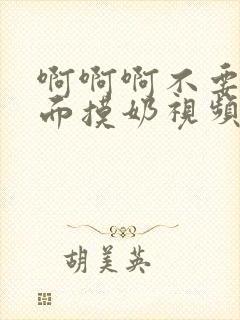 啊啊啊不要
而摸奶視頻
胡美英